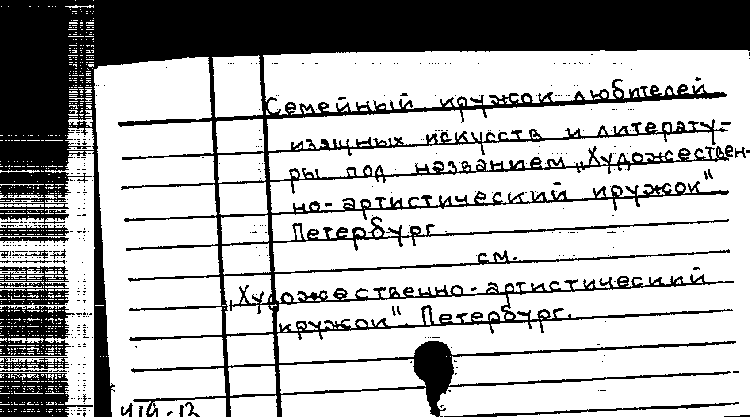 Семейный кружок любителей
изящных искусств и литерату-
ры под названием „Художествен-
но-артистический кружок"
Петербург
см.
„Художественно-артистический
кружок". Петербург.